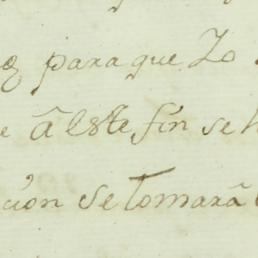 para que Lo
e â este fin se h
ción se tomarâ